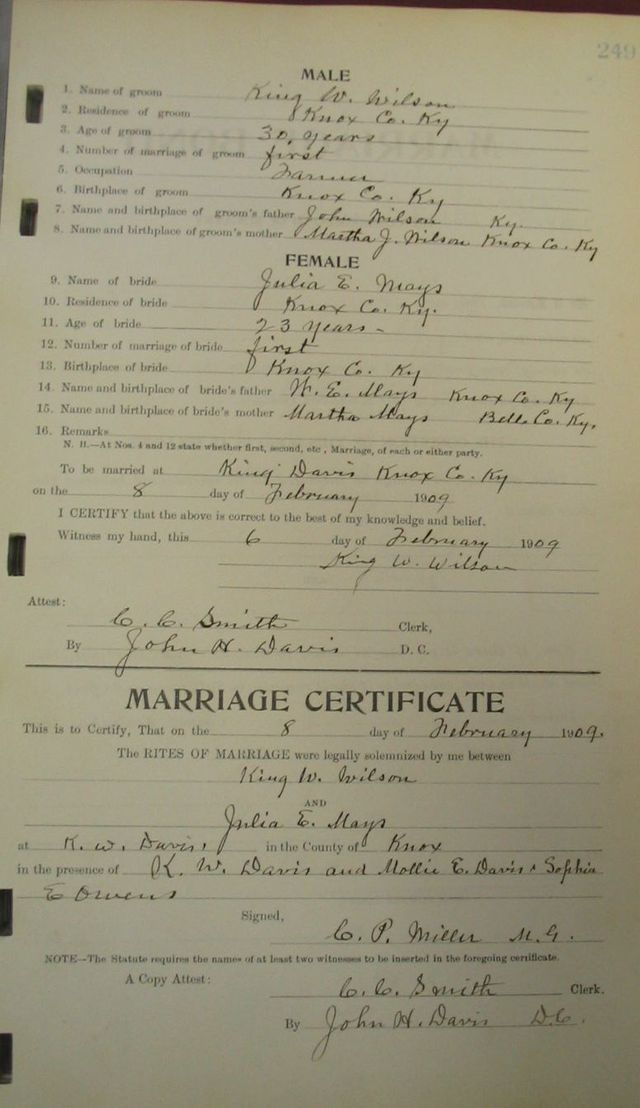 249
MALE
1. Name of groom King W. Wilson
2. Residence of groom Knox Co. Ky
3. Age of groom 30, years
4. Number of marriage of groom first
5. Occupation Farmer
6. Birthplace of groom Knox Co. Ky
7. Name and birthplace of groom's father John Wilson Ky.
8. Name and birthplace of groom's mother Martha J. Wilson Knox Co. Ky
FEMALE
9. Name of bride Julia E. Mays
10. Residence of bride Knox Co. Ky.
11. Age of bride 23 years-
12. Number of marriage of bride first
13. Birthplace of bride Knox Co. Ky
14. Name and birthplace of bride's father W. E. Mays Knox Co. Ky
15. Name and birthplace of bride's mother Martha Mays Bell Co. Ky.
16. Remarks
N. B.—At Nos. 4 and 12 state whether first, second, etc., Marriage, of each or either party.
To be married at King Davis Knox Co. Ky
on the 8 day of February 1909
I CERTIFY that the above is correct to the best of my knowledge and belief.
Witness my hand, this 6 day of February 1909
King W. Wilson
Attest:
C. C. Smith Clerk,
By John H. Davis D. C.
MARRIAGE CERTIFICATE
This is to Certify, That on the 8 day of February 1909.
The RITES OF MARRIAGE were legally solemnized by me between
King W. Wilson
AND
Julia E. Mays
at K. W. Davis' in the County of Knox
in the presence of K. W. Davis and Mollie E. Davis & Sophia
E Owens
Signed,
C. P. Miller M. G.
NOTE—The Statute requires the names of at least two witnesses to be inserted in the foregoing certificate.
A Copy Attest:
C. C. Smith Clerk.
By John H. Davis D.C.